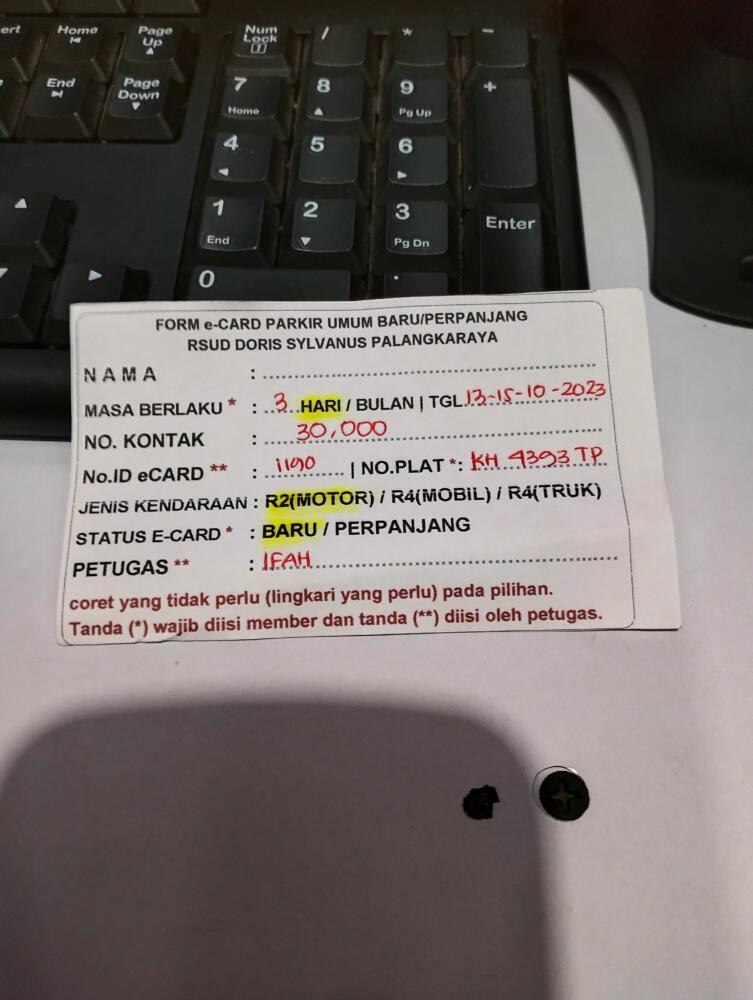 ert Home Page Up Num Lock / * -
End Page Down 7 Home 8 9 Pg Up +
4 5 6
1 End 2 3 Pg Dn Enter
0 .
FORM e-CARD PARKIR UMUM BARU/PERPANJANG
RSUD DORIS SYLVANUS PALANGKARAYA
N A M A :
MASA BERLAKU * : 3 HARI / BULAN | TGL 13-15-10-2023
NO. KONTAK : 30,000
No.ID eCARD ** : 1190 | NO.PLAT *: KH 4393 TP
JENIS KENDARAAN : R2(MOTOR) / R4(MOBIL) / R4(TRUK)
STATUS E-CARD * : BARU / PERPANJANG
PETUGAS ** : IFAH
coret yang tidak perlu (lingkari yang perlu) pada pilihan.
Tanda (*) wajib diisi member dan tanda (**) diisi oleh petugas.